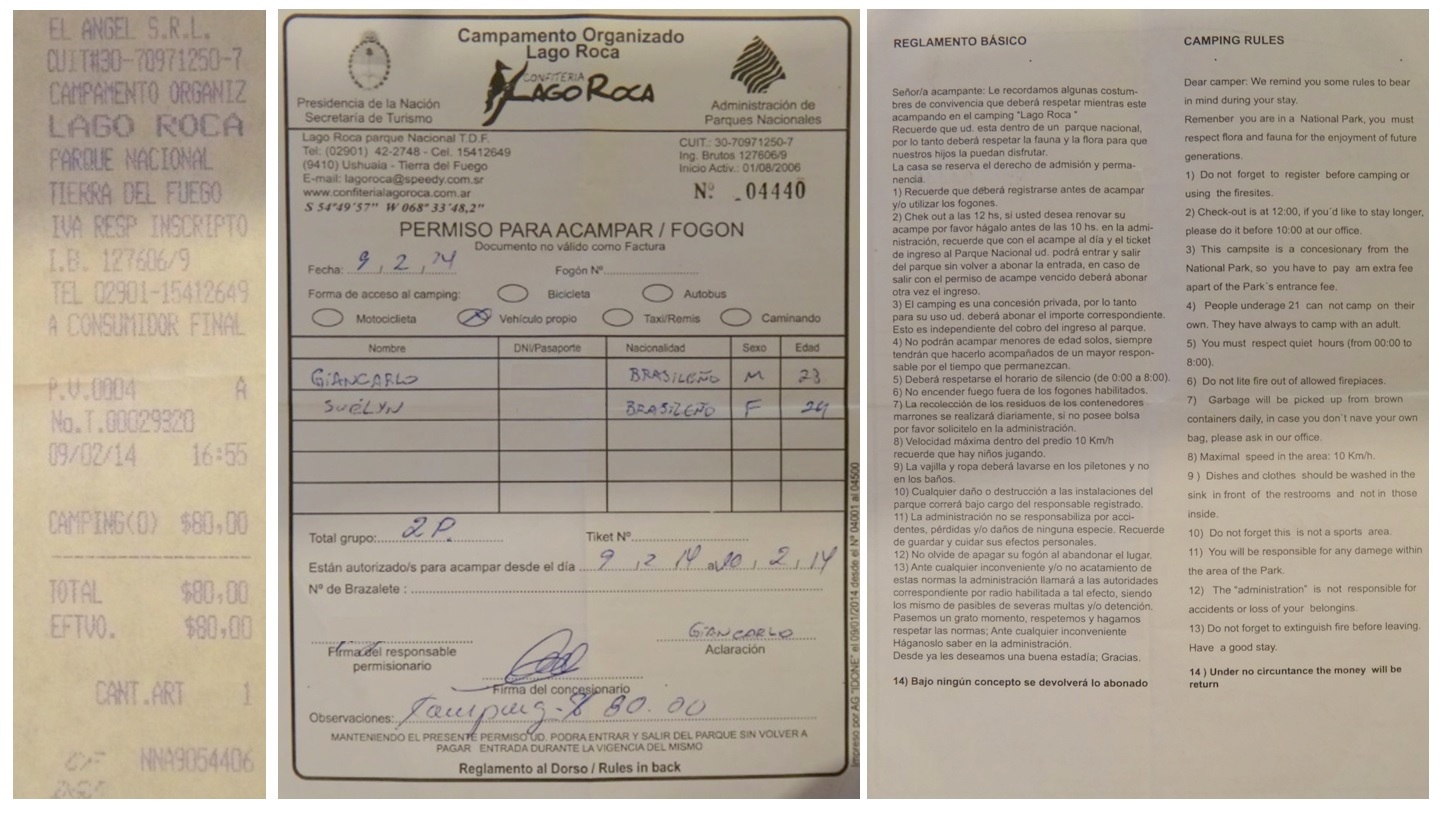 EL ANGEL S.R.L.
CUIT#30-70971250-7
CAMPAMENTO ORGANIZ
LAGO ROCA
PARQUE NACIONAL
TIERRA DEL FUEGO
IVA RESP INSCRIPTO
I.B. 127606/9
TEL 02901-15412649
A CONSUMIDOR FINAL
P.V.0004 A
No.T.00029320
09/02/14 16:55
CAMPING(0) $80,00
TOTAL $80,00
EFTVO. $80,00
CANT.ART 1
NNA9054406
Campamento Organizado
Lago Roca
CONFITERIA
LAGO ROCA
Presidencia de la Nación
Secretaría de Turismo
Administración de
Parques Nacionales
Lago Roca parque Nacional T.D.F.
Tel: (02901) 42-2748 - Cel. 15412649
(9410) Ushuaia - Tierra del Fuego
E-mail: lagoroca@speedy.com.sr
www.confiterialagoroca.com.ar
S 54°49'57" W 068° 33'48,2"
CUIT.: 30-70971250-7
Ing. Brutos 127606/9
Inicio Activ.: 01/08/2006
Nº 04440
PERMISO PARA ACAMPAR / FOGON
Documento no válido como Factura
Fecha: 9, 2, 14 Fogón Nº
Forma de acceso al camping: Bicicleta Autobus
Motociclieta Vehículo propio Taxi/Remis Caminando
Nombre DNI/Pasaporte Nacionalidad Sexo Edad
GIANCARLO BRASILEÑO M 23
SUÉLYN BRASILEÑO F 24
Total grupo: 2 P. Tiket Nº
Están autorizado/s para acampar desde el día 9, 2, 14 al 10, 2, 14
Nº de Brazalete :
GIANCARLO
Firma del responsable
permisionario
Aclaración
Firma del concesionario
Observaciones: Camping $ 80.00
MANTENIENDO EL PRESENTE PERMISO UD. PODRA ENTRAR Y SALIR DEL PARQUE SIN VOLVER A
PAGAR ENTRADA DURANTE LA VIGENCIA DEL MISMO
Reglamento al Dorso / Rules in back
Impreso por AG "IDONE" el 09/01/2014 desde el Nº 04001 al 04500
REGLAMENTO BÁSICO
Señor/a acampante: Le recordamos algunas costum-
bres de convivencia que deberá respetar mientras este
acampando en el camping "Lago Roca "
Recuerde que ud. esta dentro de un parque nacional,
por lo tanto deberá respetar la fauna y la flora para que
nuestros hijos la puedan disfrutar.
La casa se reserva el derecho de admisión y perma-
nencia.
1) Recuerde que deberá registrarse antes de acampar
y/o utilizar los fogones.
2) Chek out a las 12 hs, si usted desea renovar su
acampe por favor hágalo antes de las 10 hs. en la admi-
nistración, recuerde que con el acampe al día y el ticket
de ingreso al Parque Nacional ud. podrá entrar y salir
del parque sin volver a abonar la entrada, en caso de
salir con el permiso de acampe vencido deberá abonar
otra vez el ingreso.
3) El camping es una concesión privada, por lo tanto
para su uso ud. deberá abonar el importe correspondiente.
Esto es independiente del cobro del ingreso al parque.
4) No podrán acampar menores de edad solos, siempre
tendrán que hacerlo acompañados de un mayor respon-
sable por el tiempo que permanezcan.
5) Deberá respetarse el horario de silencio (de 0:00 a 8:00).
6) No encender fuego fuera de los fogones habilitados.
7) La recolección de los residuos de los contenedores
marrones se realizará diariamente, si no posee bolsa
por favor solicitelo en la administración.
8) Velocidad máxima dentro del predio 10 Km/h
recuerde que hay niños jugando.
9) La vajilla y ropa deberá lavarse en los piletones y no
en los baños.
10) Cualquier daño o destrucción a las instalaciones del
parque correrá bajo cargo del responsable registrado.
11) La administración no se responsabiliza por acci-
dentes, pérdidas y/o daños de ninguna especie. Recuerde
de guardar y cuidar sus efectos personales.
12) No olvide de apagar su fogón al abandonar el lugar.
13) Ante cualquier inconveniente y/o no acatamiento de
estas normas la administración llamará a las autoridades
correspondiente por radio habilitada a tal efecto, siendo
los mismo de pasibles de severas multas y/o detención.
Pasemos un grato momento, respetemos y hagamos
respetar las normas; Ante cualquier inconveniente
Háganoslo saber en la administración.
Desde ya les deseamos una buena estadía; Gracias.
14) Bajo ningún concepto se devolverá lo abonado
CAMPING RULES
Dear camper: We remind you some rules to bear
in mind during your stay.
Remenber you are in a National Park, you must
respect flora and fauna for the enjoyment of future
generations.
1) Do not forget to register before camping or
using the firesites.
2) Check-out is at 12:00, if you´d like to stay longer,
please do it before 10:00 at our office.
3) This campsite is a concesionary from the
National Park, so you have to pay am extra fee
apart of the Park´s entrance fee.
4) People underage 21 can not camp on their
own. They have always to camp with an adult.
5) You must respect quiet hours (from 00:00 to
8:00).
6) Do not lite fire out of allowed fireplaces.
7) Garbage will be picked up from brown
containers daily, in case you don´t nave your own
bag, please ask in our office.
8) Maximal speed in the area: 10 Km/h.
9 ) Dishes and clothes should be washed in the
sink in front of the restrooms and not in those
inside.
10) Do not forget this is not a sports area.
11) You will be responsible for any damege within
the area of the Park.
12) The "administration" is not responsible for
accidents or loss of your belongins.
13) Do not forget to extinguish fire before leaving.
Have a good stay.
14 ) Under no circuntance the money will be
return